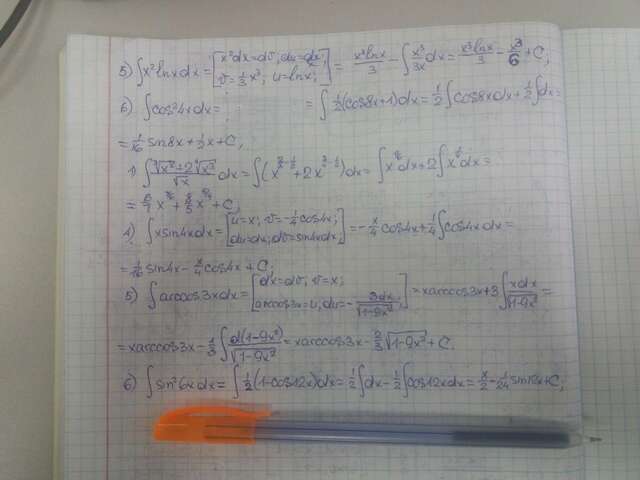 5) ∫x²lnxdx = [x²dx=dv, du=dx/x; v=1/3 x³, u=lnx;] = x³lnx/3 - ∫x³/3x dx = x³lnx/3 - x³/6 + C;
6) ∫cos²4xdx = ; = ∫1/2(cos8x+1)dx = 1/2∫cos8xdx + 1/2∫dx =
= 1/16 sin8x + 1/2x + C;
= 6/7 x^7/6 + 8/5 x^5/4 + C;
4) ∫xsin4xdx = [u=x; v=-1/4cos4x; du=dx; dv=sin4xdx;] = -x/4 cos4x + 1/4∫cos4xdx =
= 1/16 sin4x - x/4 cos4x + C;
5) ∫arccos3xdx = [dx=dv, v=x; arccos3x=u, du=-3dx/√1-9x²;] = xarccos3x + 3∫xdx/√1-9x² =
= xarccos3x - 1/3∫d(1-9x²)/√1-9x² = xarccos3x - 2/3√1-9x² + C.
6) ∫sin²6xdx = ∫1/2(1-cos12x)dx = 1/2∫dx - 1/2∫cos12xdx = x/2 - 1/24 sin12x + C;